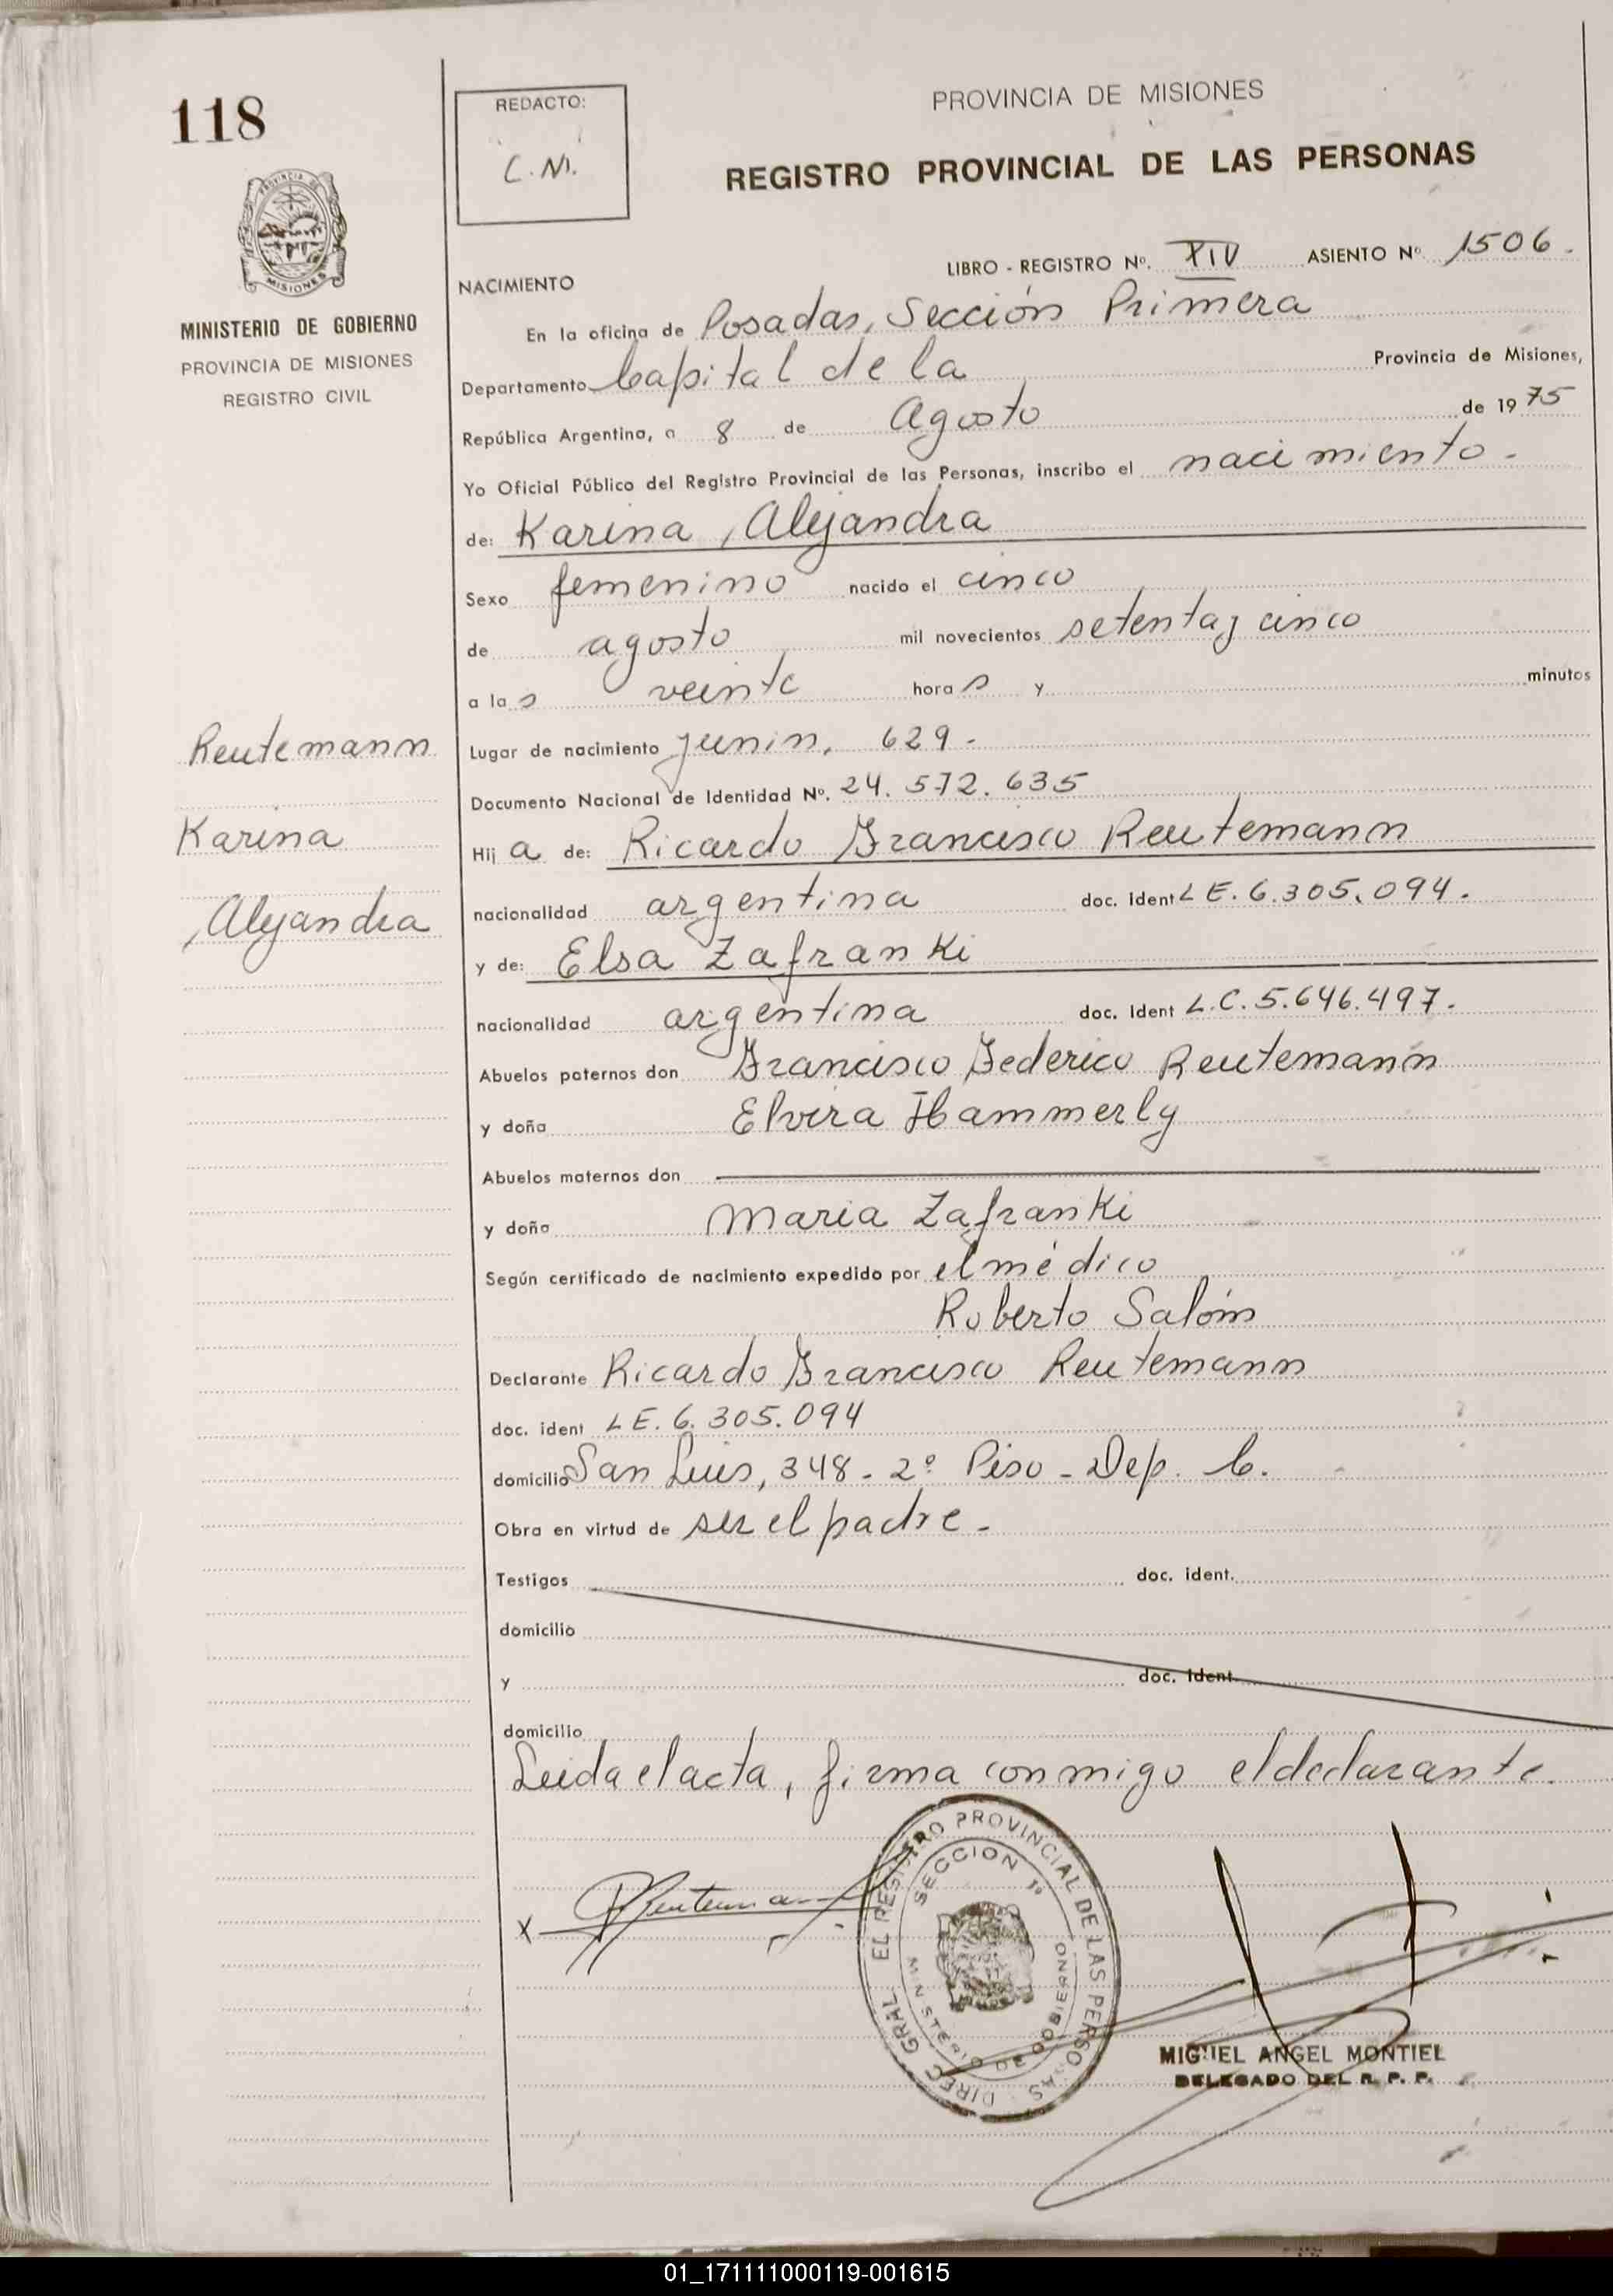 118
REDACTO:
C. M.
PROVINCIA DE MISIONES
REGISTRO PROVINCIAL DE LAS PERSONAS
PROVINCIA DE
MISIONES
MINISTERIO DE GOBIERNO
PROVINCIA DE MISIONES
REGISTRO CIVIL
LIBRO - REGISTRO Nº. XIV ASIENTO Nº 1506.
NACIMIENTO
En la oficina de Posadas, Sección Primera
Departamento Capital de la Provincia de Misiones,
República Argentina, a 8 de Agosto de 1975
Yo Oficial Público del Registro Provincial de las Personas, inscribo el nacimiento.
de: Karina, Alejandra
Sexo femenino nacido el cinco
de agosto mil novecientos setenta y cinco
a las veinte horas y minutos
Reutemann
Karina
, Alejandra
Lugar de nacimiento Junin, 629.
Documento Nacional de Identidad Nº. 24.572.635
Hija de: Ricardo Francisco Reutemann
nacionalidad argentina doc. ident L E. 6.305.094.
y de: Elsa Zafranki
nacionalidad argentina doc. Ident L.C. 5.646.497.
Abuelos paternos don Francisco Federico Reutemann
y doña Elvira Hammerly
Abuelos maternos don
y doña Maria Zafranki
Según certificado de nacimiento expedido por el médico
Roberto Salóm
Declarante Ricardo Francisco Reutemann
doc. ident L E. 6.305.094
domicilio San Luis, 348 - 2º Piso - Dep. C.
Obra en virtud de ser el padre.
Testigos doc. ident.
domicilio
y doc. Ident
domicilio
Leida el acta, firma conmigo el declarante.
X Reutemann
DIREC. GRAL. EL REGISTRO PROVINCIAL DE LAS PERSONAS
SECCION 1º
MINISTERIO DE GOBIERNO
MIGUEL ANGEL MONTIEL
DELEGADO DEL R. P. P.
01_171111000119-001615